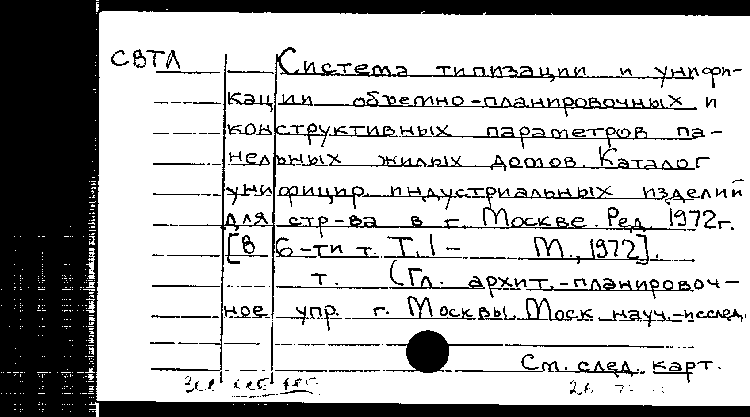 СВТЛ
Система типизации и унифи-
кации объемно-планировочных и
конструктивных параметров па-
нельных жилых домов. Каталог
унифицир. индустриальных изделий
для стр-ва в г. Москве. Ред. 1972г.
[В 6-ти т. Т.1- М., 1972].
т. (Гл. архит.-планировоч-
ное упр. г. Москвы. Моск. науч.-исслед.
См. след. карт.